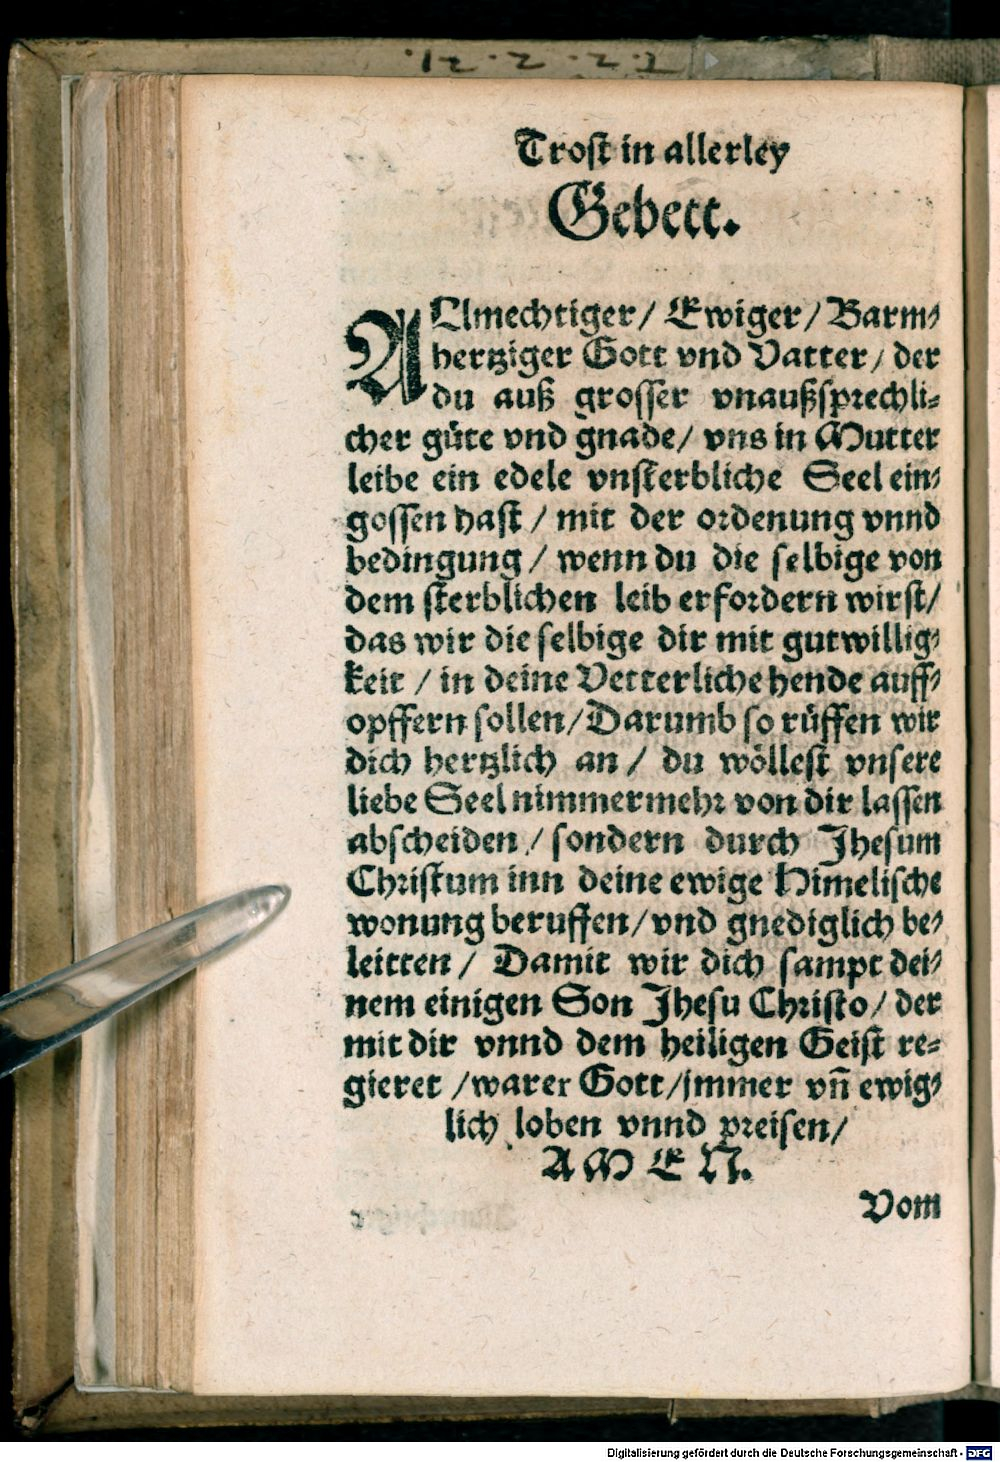 Trost in allerley
Gebett.
ALlmechtiger/ Ewiger/ Barm⸗
hertziger Gott vnd Vatter/ der
du auß grosser vnaußsprechli⸗
cher güte vnd gnade/ vns in Mutter
leibe ein edele vnsterbliche Seel ein⸗
gossen hast/ mit der ordenung vnnd
bedingung/ wenn du die selbige von
dem sterblichen leib erfordern wirst/
das wir die selbige dir mit gutwillig⸗
keit/ in deine Vetterliche hende auff⸗
opffern sollen/ Darumb so rüffen wir
dich hertzlich an/ du wöllest vnsere
liebe Seel nimmermehr von dir lassen
abscheiden/ sondern durch Jhesum
Christum inn deine ewige Himelische
wonung beruffen/ vnd gnediglich be⸗
leitten/ Damit wir dich sampt dei⸗
nem einigen Son Jhesu Christo/ der
mit dir vnnd dem heiligen Geist re⸗
gieret/ warer Gott/ immer vn̄ ewig⸗
lich loben vnnd preisen/
AMEN.
Vom
Digitalisierung gefördert durch die Deutsche Forschungsgemeinschaft - DFG